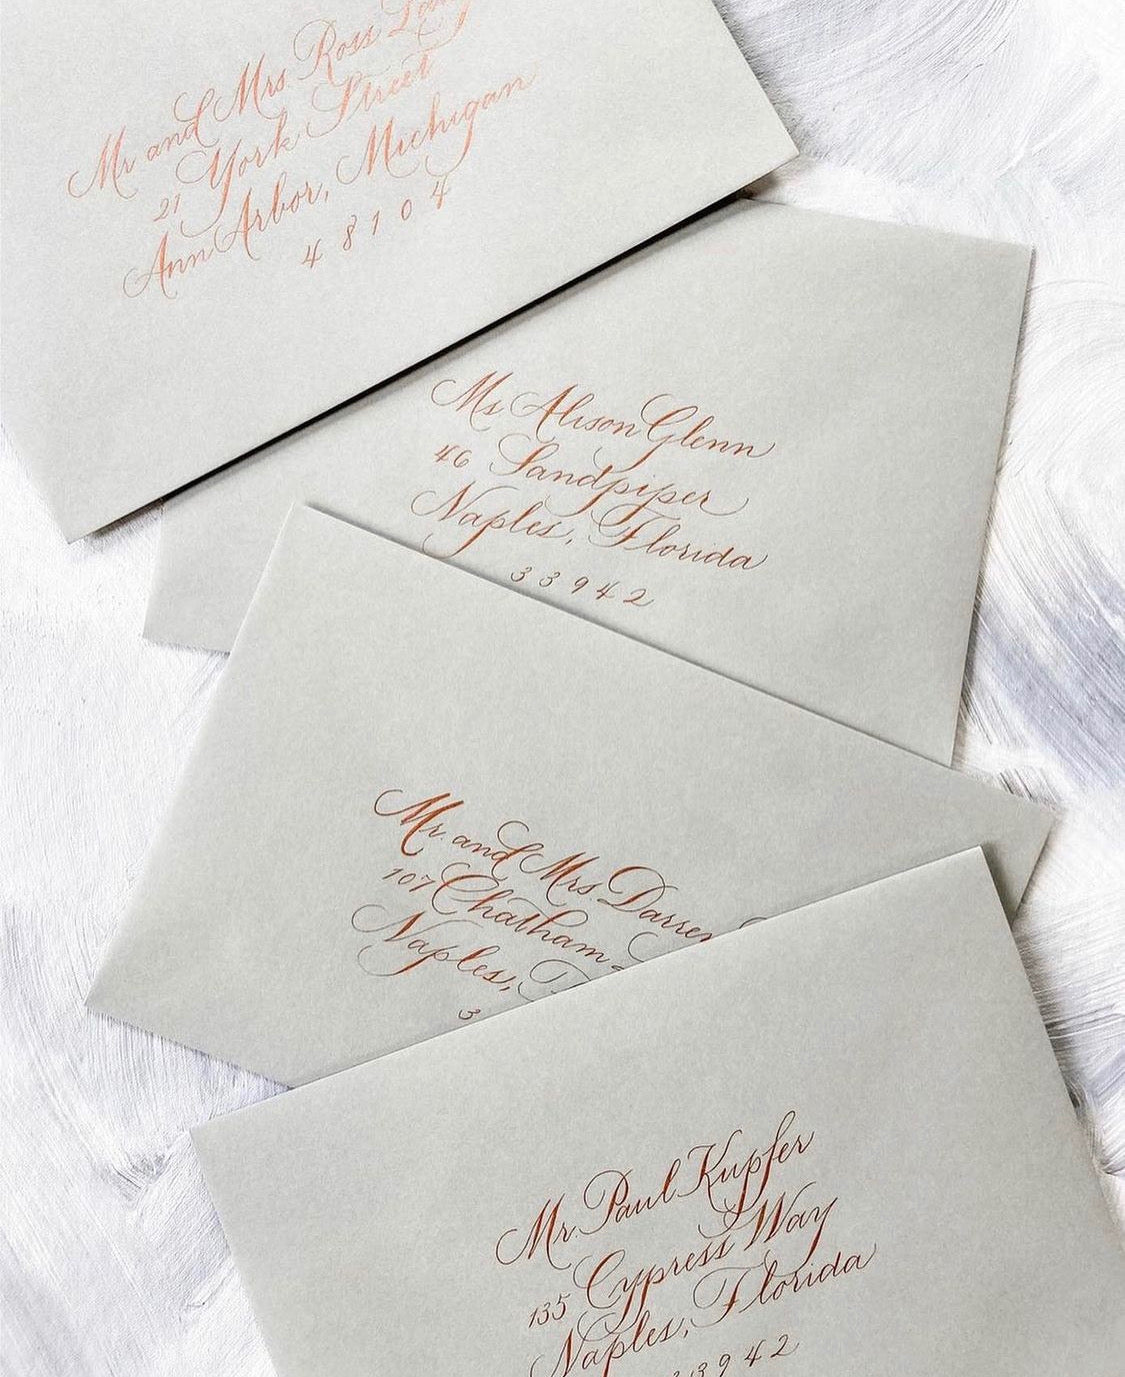 Mr and Mrs Ross
21 York Street
Ann Arbor, Michigan
48104
Ms Alison Glenn
46 Sandpiper
Naples, Florida
33942
Mr. and Mrs. Darren
107 Chatham
Naples,
3
Mr. Paul Kupfer
135 Cypress Way
Naples, Florida
3942